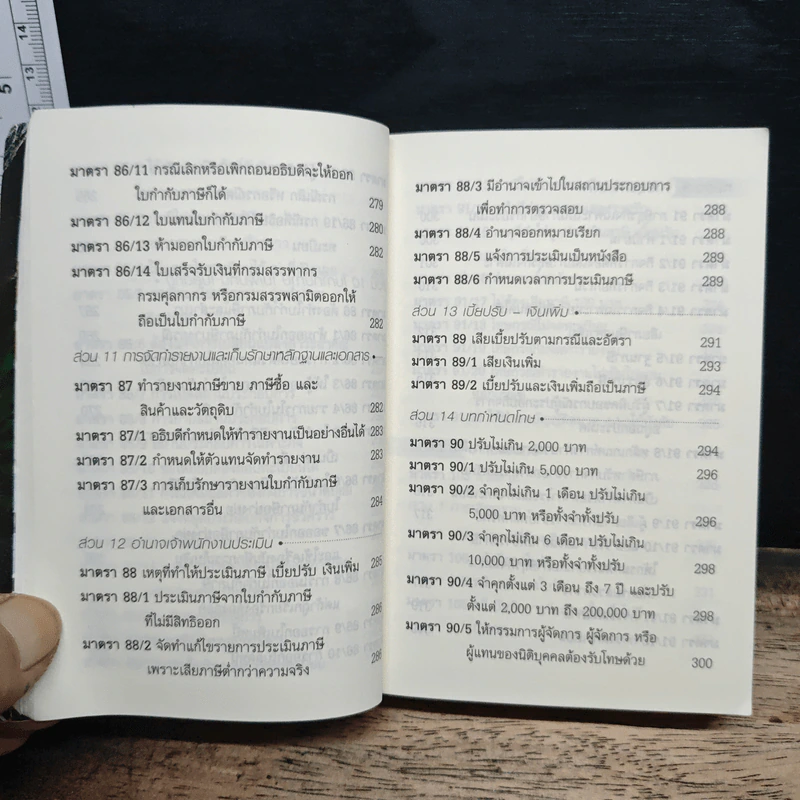 มาตรา 86/11 กรณีเลิกหรือเพิกถอนอธิบดีจะให้ออก
ใบกำกับภาษีก็ได้ 279
มาตรา 86/12 ใบแทนใบกำกับภาษี 280
มาตรา 86/13 ห้ามออกใบกำกับภาษี 282
มาตรา 86/14 ใบเสร็จรับเงินที่กรมสรรพากร
กรมศุลกากร หรือกรมสรรพสามิตออกให้
ถือเป็นใบกำกับภาษี 282
ส่วน 11 การจัดทำรายงานและเก็บรักษาหลักฐานและเอกสาร
มาตรา 87 ทำรายงานภาษีขาย ภาษีซื้อ และ
สินค้าและวัตถุดิบ 282
มาตรา 87/1 อธิบดีกำหนดให้ทำรายงานเป็นอย่างอื่นได้ 283
มาตรา 87/2 กำหนดให้ตัวแทนจัดทำรายงาน 283
มาตรา 87/3 การเก็บรักษารายงานใบกำกับภาษี
และเอกสารอื่น 284
ส่วน 12 อำนาจเจ้าพนักงานประเมิน
มาตรา 88 เหตุที่ทำให้ประเมินภาษี เบี้ยปรับ เงินเพิ่ม 285
มาตรา 88/1 ประเมินภาษีจากใบกำกับภาษี
ที่ไม่มีสิทธิออก 286
มาตรา 88/2 จัดทำแก้ไขรายการประเมินภาษี
เพราะเสียภาษีต่ำกว่าความจริง 286
มาตรา 88/3 มีอำนาจเข้าไปในสถานประกอบการ
เพื่อทำการตรวจสอบ 288
มาตรา 88/4 อำนาจออกหมายเรียก 288
มาตรา 88/5 แจ้งการประเมินเป็นหนังสือ 289
มาตรา 88/6 กำหนดเวลาการประเมินภาษี 289
ส่วน 13 เบี้ยปรับ – เงินเพิ่ม
มาตรา 89 เสียเบี้ยปรับตามกรณีและอัตรา 291
มาตรา 89/1 เสียเงินเพิ่ม 293
มาตรา 89/2 เบี้ยปรับและเงินเพิ่มถือเป็นภาษี 294
ส่วน 14 บทกำหนดโทษ
มาตรา 90 ปรับไม่เกิน 2,000 บาท 294
มาตรา 90/1 ปรับไม่เกิน 5,000 บาท 296
มาตรา 90/2 จำคุกไม่เกิน 1 เดือน ปรับไม่เกิน
5,000 บาท หรือทั้งจำทั้งปรับ 296
มาตรา 90/3 จำคุกไม่เกิน 6 เดือน ปรับไม่เกิน
10,000 บาท หรือทั้งจำทั้งปรับ 298
มาตรา 90/4 จำคุกตั้งแต่ 3 เดือน ถึง 7 ปี และปรับ
ตั้งแต่ 2,000 บาท ถึง 200,000 บาท 298
มาตรา 90/5 ให้กรรมการผู้จัดการ ผู้จัดการ หรือ
ผู้แทนของนิติบุคคลต้องรับโทษด้วย 300
5
12
13
14